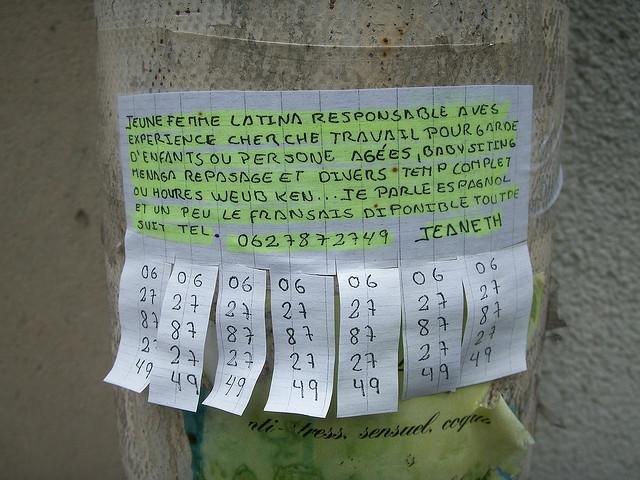 JEUNE FEMME LATINA RESPONSABLE AVES
EXPERIENCE CHERCHE TRAVAIL POUR GARDE
D'ENFANTS OU PERSONE AGÉES, BABYSITING
MENAGA REPASAGE ET DIVERS TEMP COMPLET
OU HOURES WEUB KEN... JE PARLE ESPAGNOL
ET UN PEU LE FRANSAIS DIPONIBLE TOUTDE
SUIT TEL. 0627872749 JEANETH
06 06 06 06 06 06 06
27 27 27 27 27 27 27
87 87 87 87 87 87 87
27 27 27 27 27 27
49 49 49 49 49 49 49
sensuel,